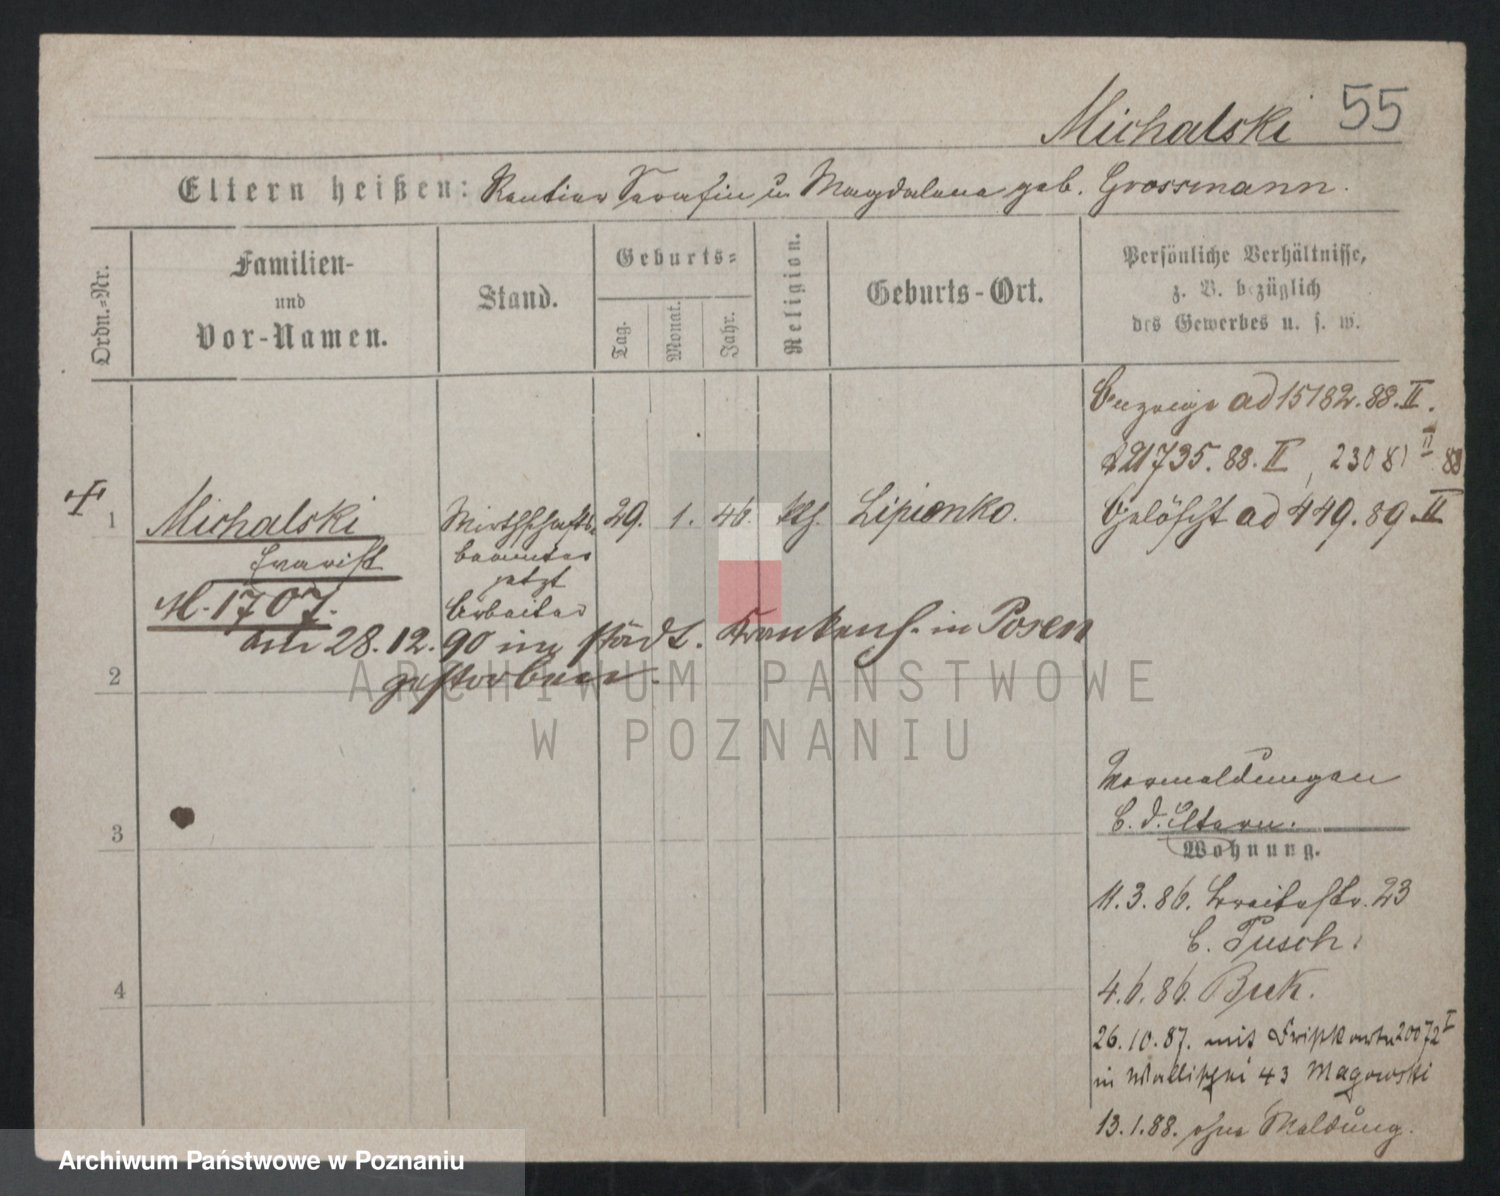 Michalski 55
Eltern heißen: Rentier Serafin u Magdalena geb. Grossmann.
Ordn.-Nr.
Familien-
und
Vor-Namen.
Stand.
Geburts-
Tag.
Monat.
Jahr.
Religion.
Geburts-Ort.
Persönliche Verhältnisse,
z. B. bezüglich
des Gewerbes u. s. w.
Anzeige ad 15182. 88. II.
21735. 88. II, 23081 II 88
Gelöscht ad 449. 89. II
1 Michalski Wirthschafts- 29. 1. 46. kth. Lipienko.
Evarist beamter
jetzt
M. 1707. Arbeiter
am 28. 12. 90 im städt. Krankenh. in Posen
gestorben.
2
3
4
Vormeldungen
b. d. Eltern.
Wohnung.
11. 3. 86. Breitestr. 23
b. Pusch.
4. 6. 86. Buk.
26. 10. 87. mit 20072 I
in Wallischei 43 Magowski
13. 1. 88. ohne Meldung.
ARCHIWUM PAŃSTWOWE
W POZNANIU
Archiwum Państwowe w Poznaniu